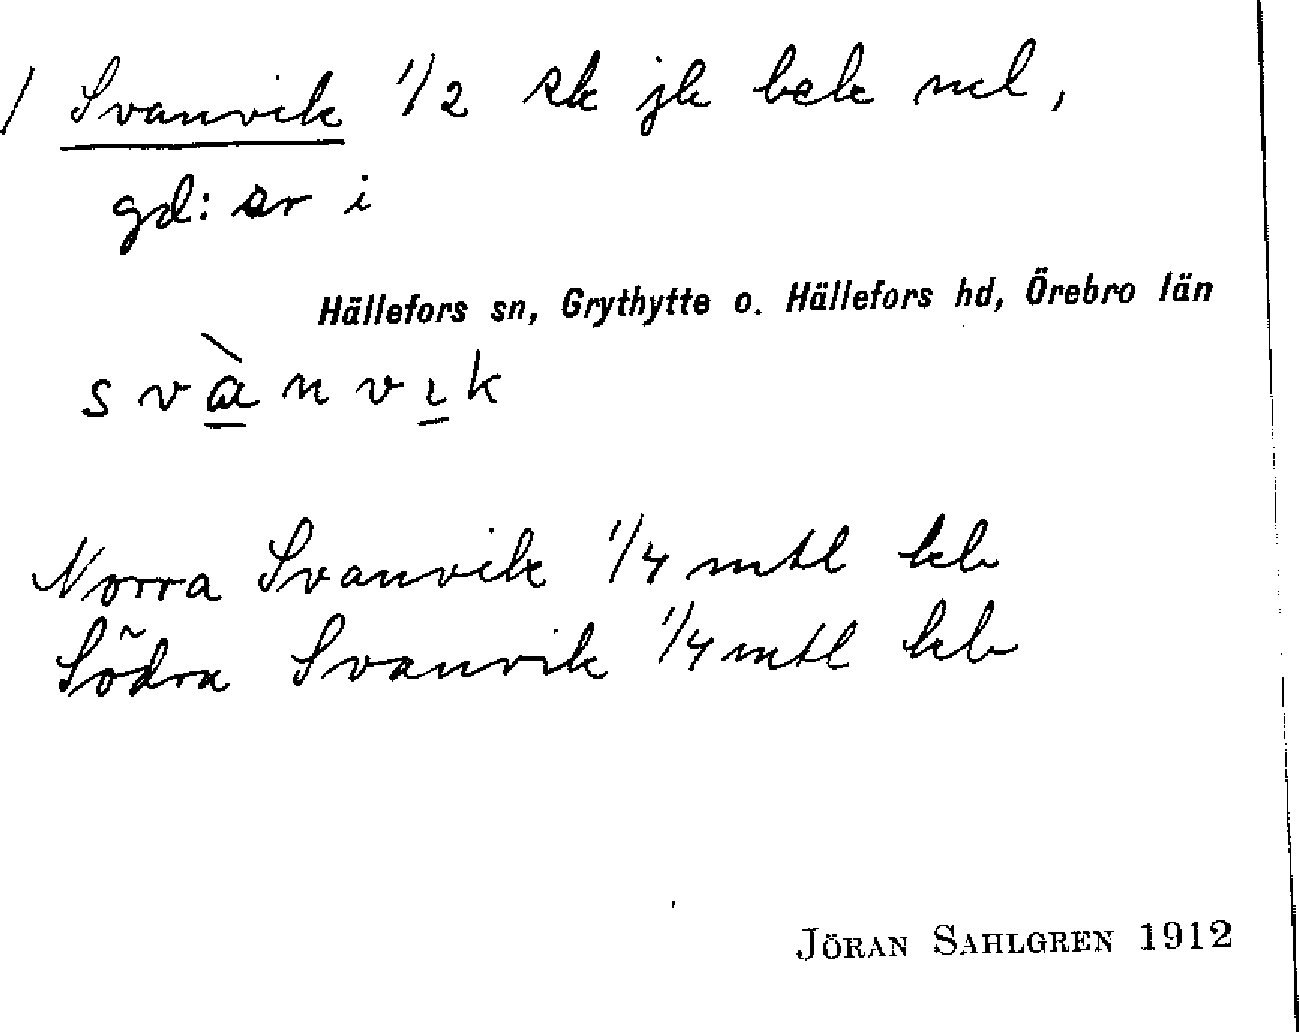 / Svanvik 1/2 sk jk bek ncl,
gd: sr i
Hällefors sn, Grythytte o. Hällefors hd, Örebro län
svànvık
Norra Svanvik 1/4 mtl kb
Södra Svanvik 1/4 mtl kb
JÖRAN SAHLGREN 1912